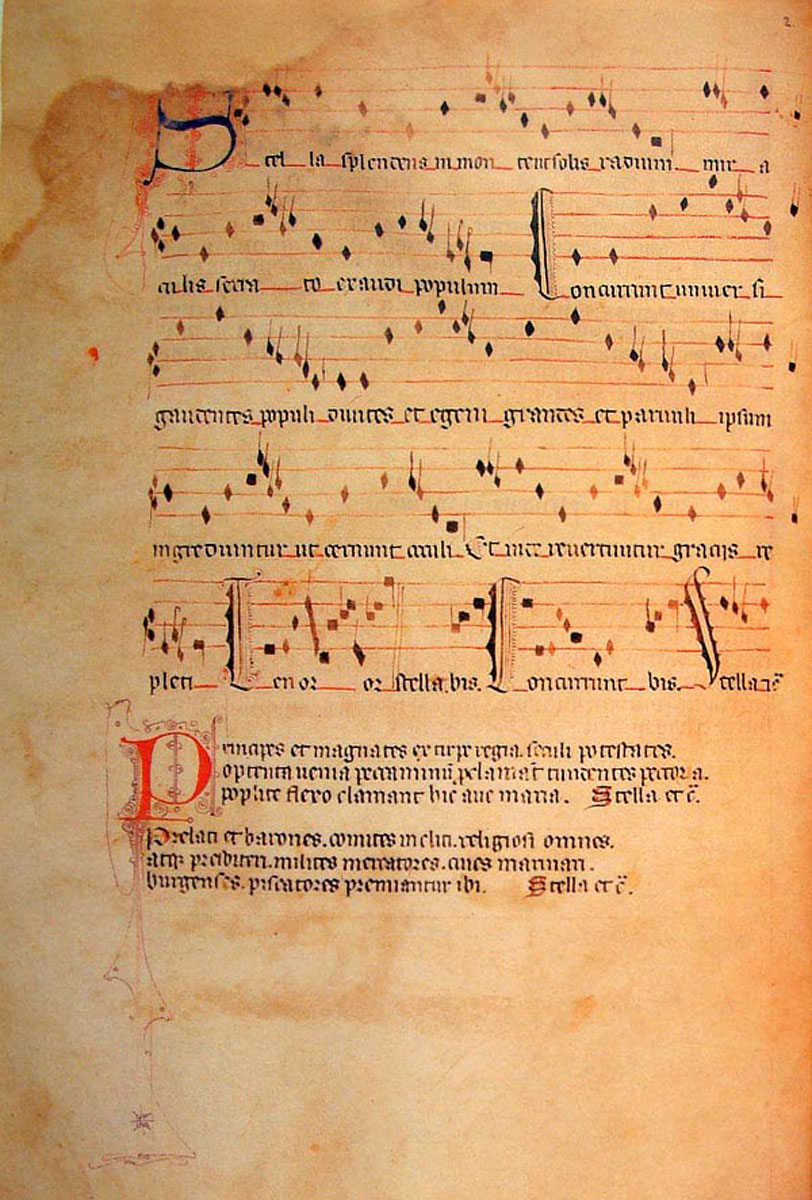 2
Stel la splendens in mon te ut solis radium mir a
culis serra to exaudi populum Concurrunt univer si
gaudentes populi divites et egeni grandes et parvuli ipsum
ingrediuntur ut cernunt oculi Et inde revertuntur gracis re
pleti Tenor or stella.bis. Concurrunt bis. Stella
Principes et magnates ex tirpe regia. seculi potestates.
optenta venia peccaminū. tundentes pectora.
poplite flexo clamant hic ave maria. Stella et c̄.
Prelati et barones. comites incliti. religiosi omnes.
atqꝫ presbiteri. milites mercatores. cives marinari.
burgenses. piscatores premiantur ibi. Stella et c̄.